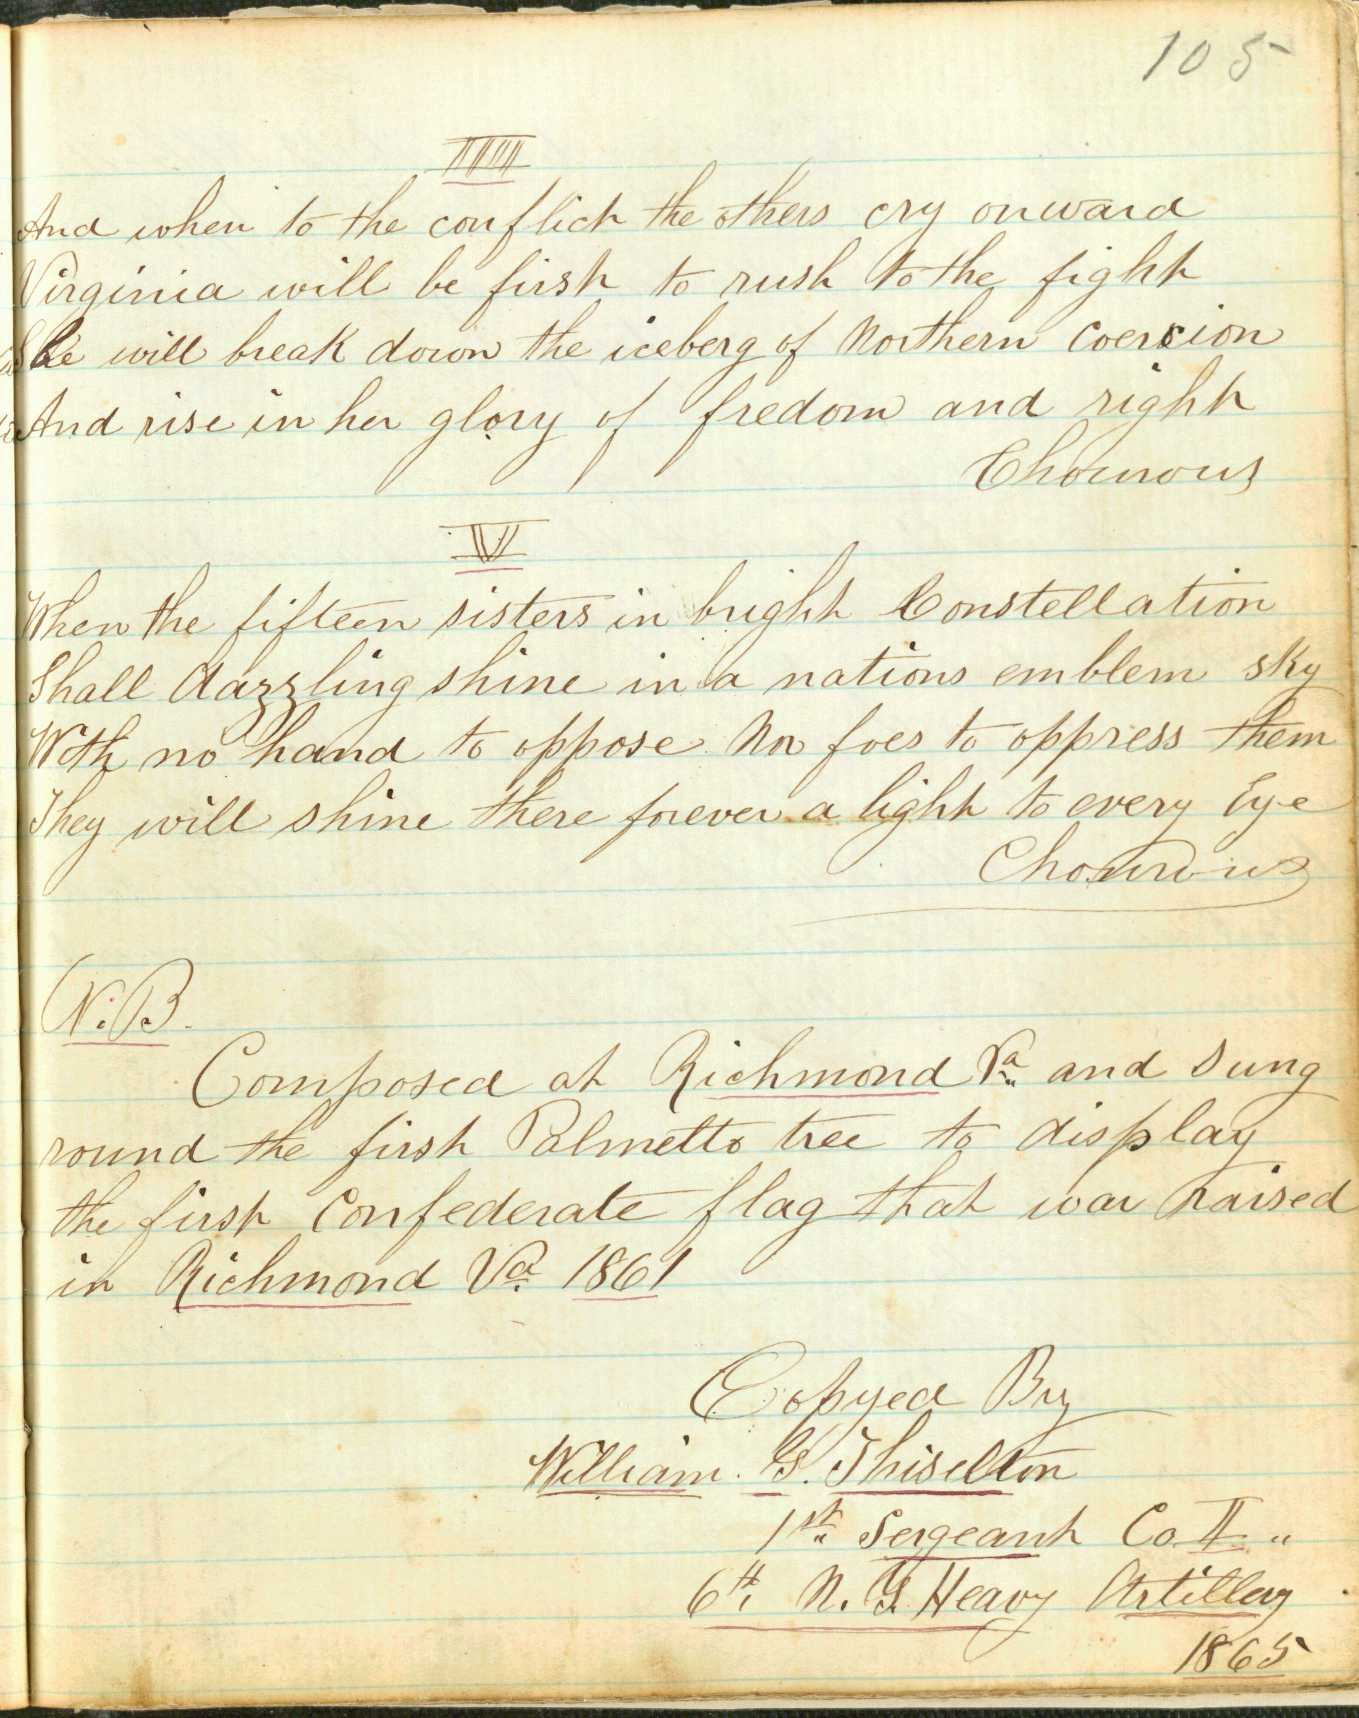 105
IIII
And when to the conflict the others cry onward
Virginia will be first to rush to the fight
She will break down the iceberg of Northern Coercion
And rise in her glory of fredom and right
Chourous
V
When the fifteen sisters in bright Constellation
Shall dazzling shine in a nations emblem sky
With no hand to oppose Nor foes to oppress them
They will shine there forever a light to every Eye
Chourous
N.B.
Composed at Richmond Va and Sung
round the first Palmetto tree to display
the first Confederate flag that was raised
in Richmond Va 1861
Copyed By
William G. Thiselton
1st Sergeant Co
6th N. Y. Heavy Artillery
1865